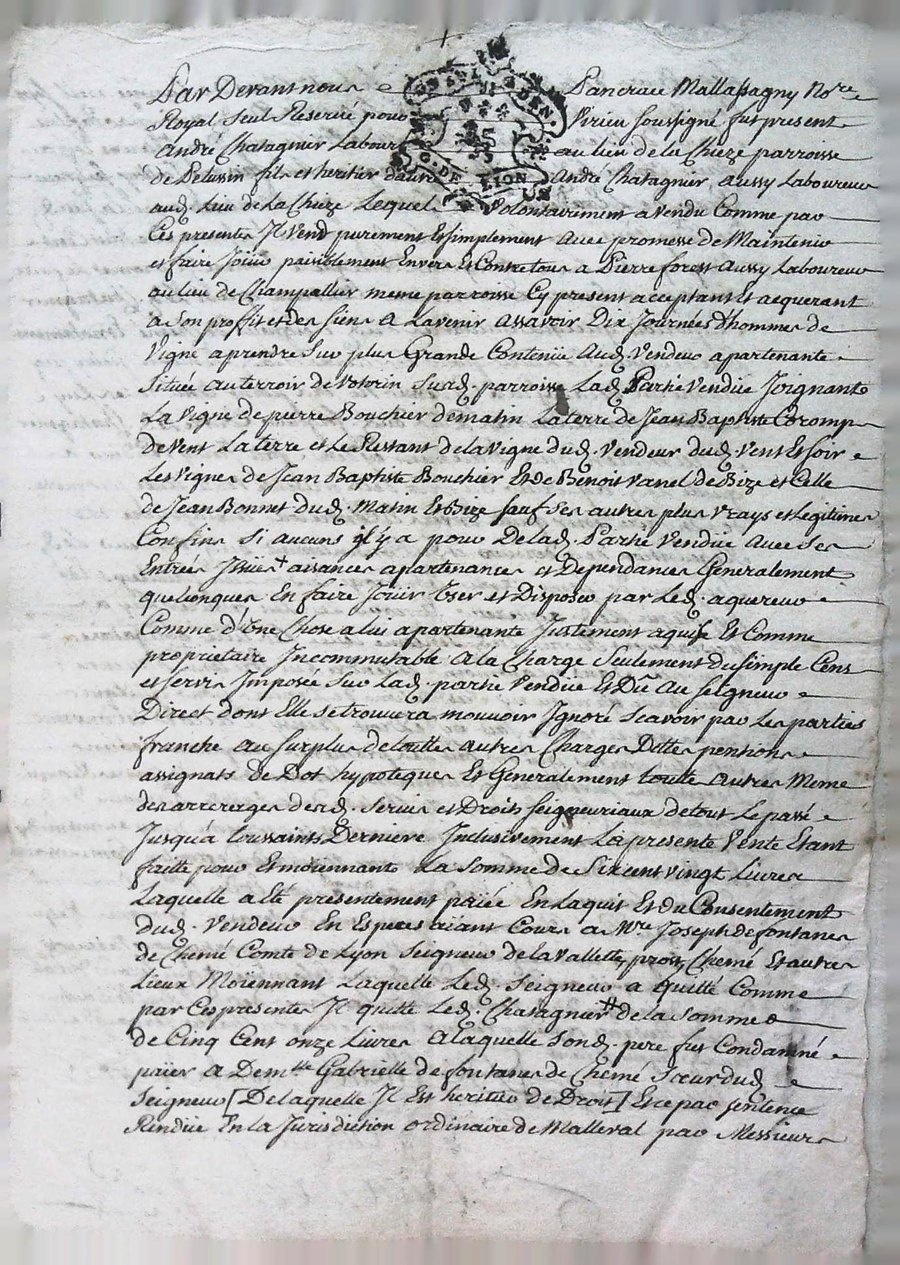 Par Devant nous Pancrace Mallassagny Nore
Royal Seul Reservé pour Virieu soussigné fut present
André Chatagnier Labour au lieu de la Chieze parroisse
de Pelussin fils et heritier dautre André Chatagnier aussy Laboureur
aud. Lieu de la Chieze Lequel Volontairement a vendu Comme par
Ces presentes Il Vend purement Et simplement avec promesse de Maintenir
et faire Jouir paisiblement Envers Et Contre tous a Pierre forest aussy Laboureur
au lieu de Champallier meme parroisse Cy present acceptant Et acquerant
a Son proffit et des siens a Lavenir assavoir Dix Journées d'hommes de
Vigne a prendre Sur plus Grande Contenüe Aud. Vendeur apartenante
Située au terroir de Votorin Susd. parroisse Lad. Partie Vendüe Joignant
La vigne de pierre Bouchier de matin La terre de Jean Baptiste Coromp
de Vent La terre et Le Restant de la Vigne dud. Vendeur dud. Vent Et soir
Les Vignes de Jean Baptiste Bouchier Et de Benoit Vanel de Bize et Celle
de Jean Bonnet dud. Matin Et Bize sauf Ses autres plus Vrays et Legitimes
Confins Si aucuns il y a pour De Lad. Partie Vendüe Avec Ses
Entrées Issües + aisances apartenances et Dependances Generalement
quelconques En faire Jouir User et Disposer par Led. aquereur
Comme d'Une Chose a lui apartenante Justement aquise Et Comme
proprietaire Incommutable A la Charge Seulement du simple Cens
et servis Imposée Sur Lad. partie Vendüe Et Dû Au seigneur
Direct dont Elle se trouvera mouvoir Ignoré Scavoir par Les parties
franche au Surplus de toutte autres Charges Dettes pensions
assignats de Dot hypoteques Et Generalement toute autres Meme
des arrerages desd. Servis et Droits seigneuriaux de tout Le passé
Jusqu'a toussaints Derniere Inclusivement La presente Vente Etant
faitte pour Et moiennant La Somme de Six cent vingt Livres
Laquelle a Eté presentement païée En Laquit Et du Consentement
dud. Vendeur En Especes aïant Cours a Mre Joseph de fontanes
de Chemé Comte de Lyon Seigneur de la Vallette, Chemé Et autres
Lieux Moïennant Laquelle Led. Seigneur a Quitté Comme
par Ces presentes Il quitte Led. Chatagnier # de la Somme
de Cinq Cent onze Livres A laquelle Sond. pere fut Condamné
païer a Demlle Gabrielle de fontanes de Chemé Sœur dud.
Seigneur [De laquelle Il Est heritier de Droit] Et ce par sentence
Rendüe En la Jurisdiction ordinaire de Malleval par Messieurs
G. DE LION